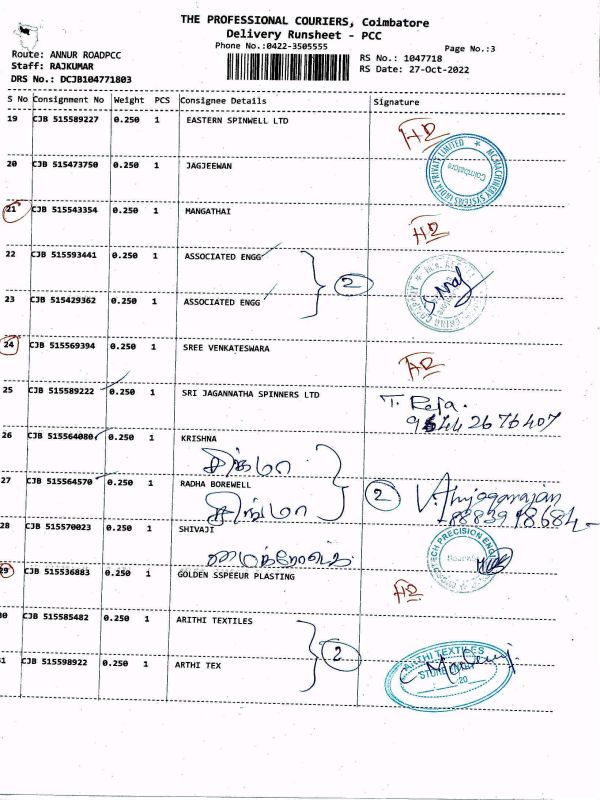 THE PROFESSIONAL COURIERS, Coimbatore
Delivery Runsheet - PCC
Phone No.:0422-3505555
Page No.:3
Route: ANNUR ROADPCC
Staff: RAJKUMAR
DRS No.: DCJB104771803
RS No.: 1047718
RS Date: 27-Oct-2022
S No Consignment No Weight PCS Consignee Details Signature
19 CJB 515589227 0.250 1 EASTERN SPINWELL LTD
20 CJB 515473750 0.250 1 JAGJEEWAN
MCMACHINERY SYSTEMS INDIA PRIVATE LIMITED
Coimbatore
21 CJB 515543354 0.250 1 MANGATHAI
22 CJB 515593441 0.250 1 ASSOCIATED ENGG
2
23 CJB 515429362 0.250 1 ASSOCIATED ENGG
24 CJB 515569394 0.250 1 SREE VENKATESWARA
25 CJB 515589222 0.250 1 SRI JAGANNATHA SPINNERS LTD
T. Reja.
26 CJB 515564080 0.250 1 KRISHNA
27 CJB 515564570 0.250 1 RADHA BOREWELL
2
28 CJB 515570023 0.250 1 SHIVAJI
PRECISION
29 CJB 515536883 0.250 1 GOLDEN SSPEEUR PLASTING
30 CJB 515585482 0.250 1 ARITHI TEXTILES
2
31 CJB 515598922 0.250 1 ARTHI TEX
ARTHI TEXTILES
20